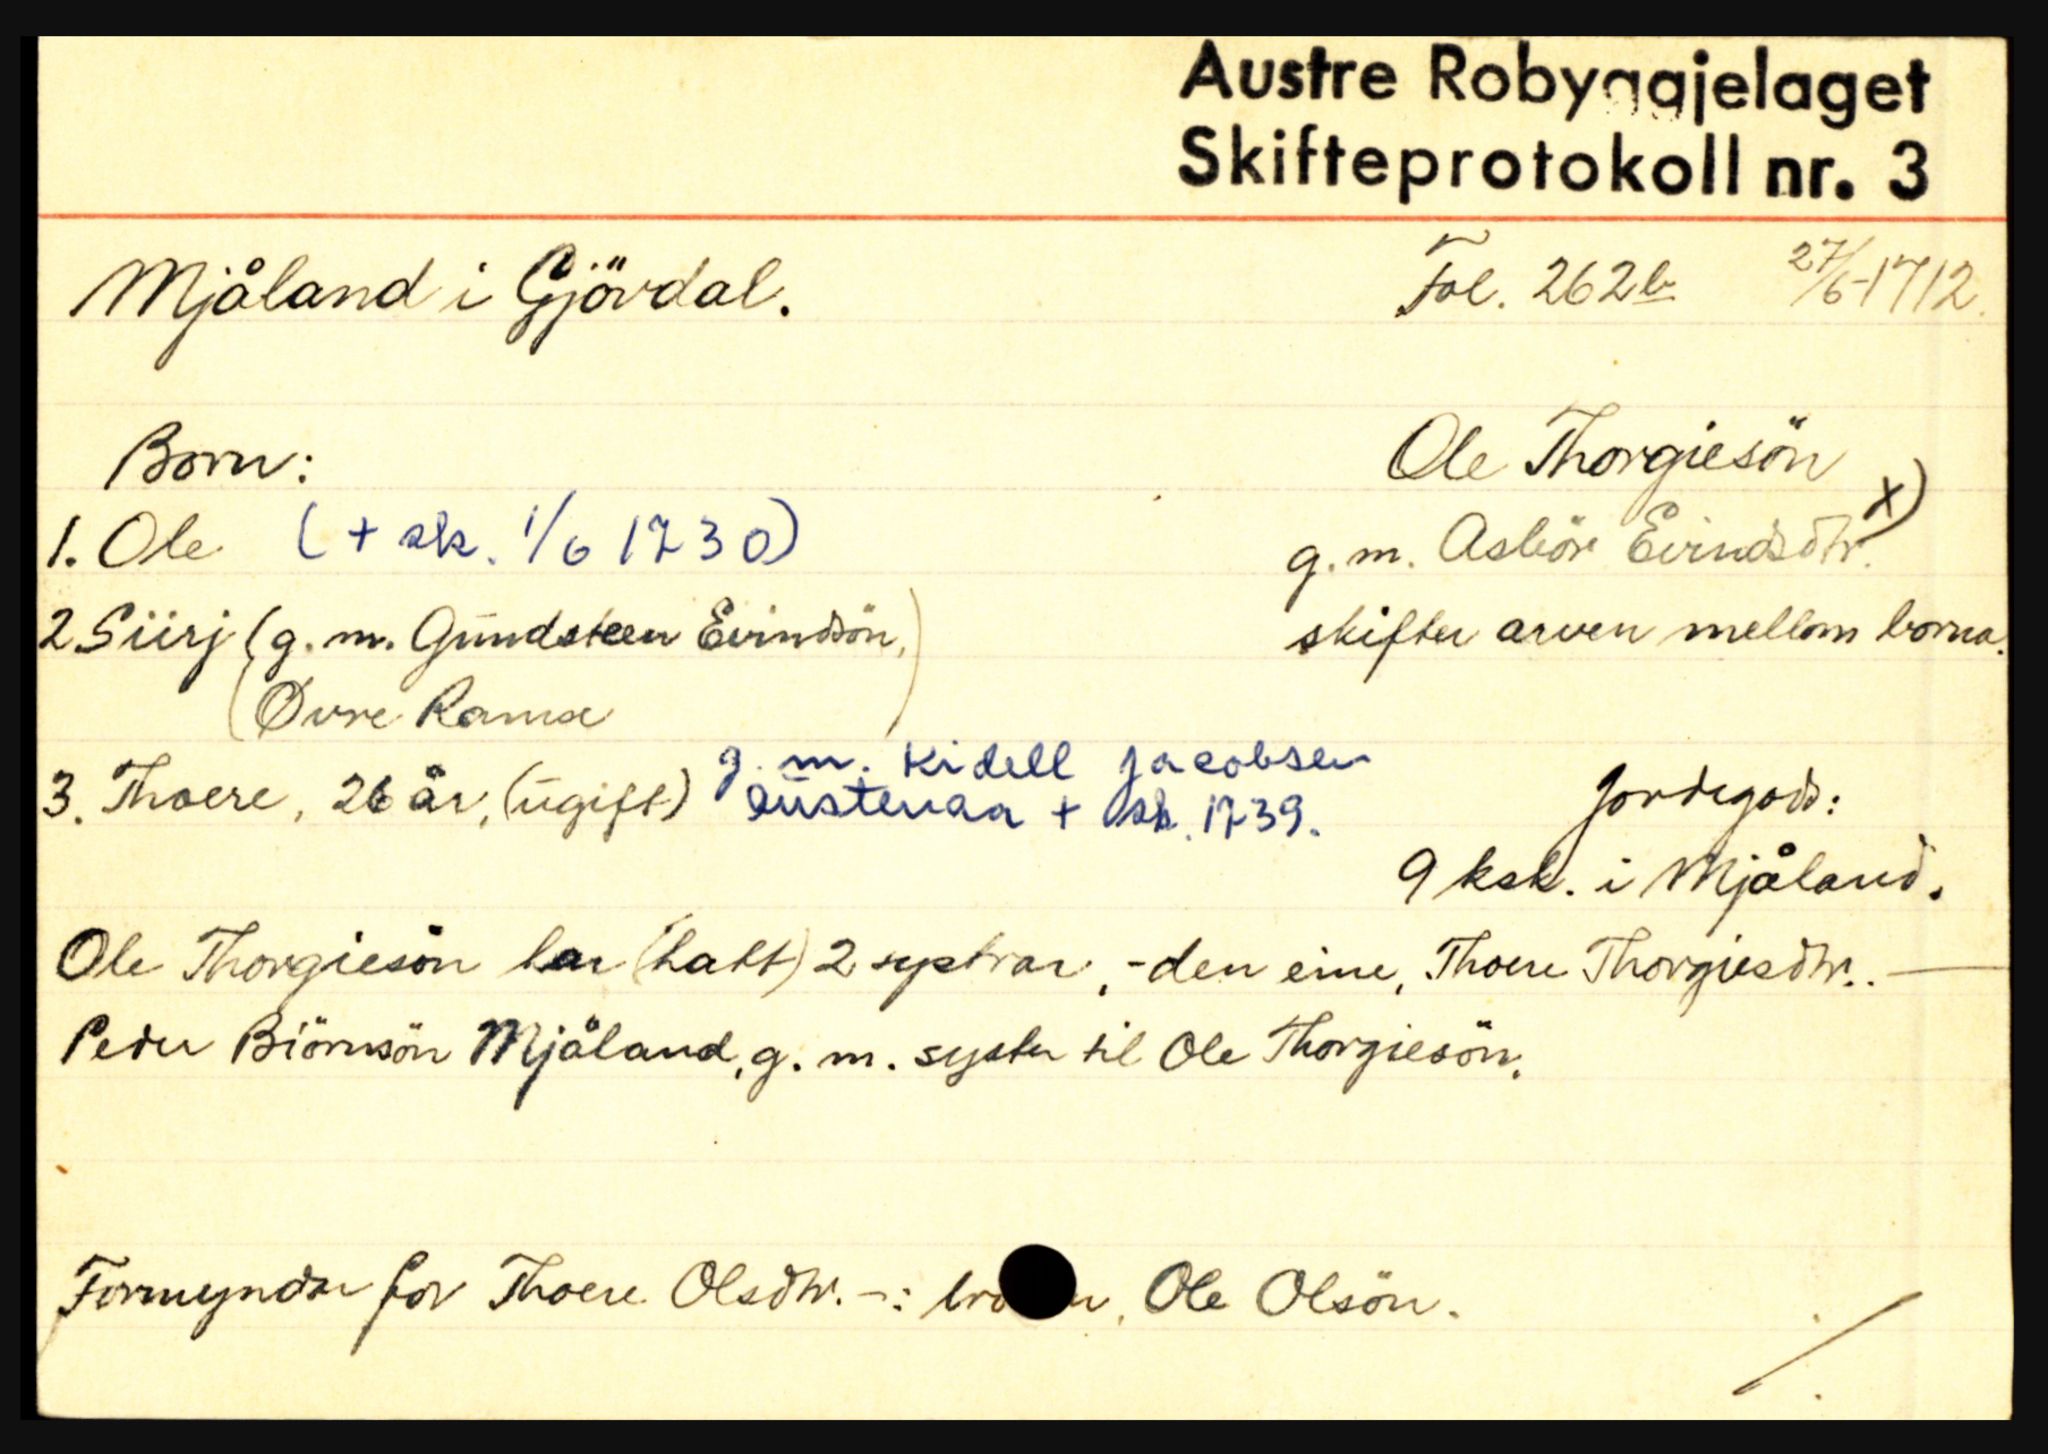 Austre Robyggjelaget
Skifteprotokoll nr. 3
Mjåland i Gjövdal.
Fol. 262b 27/6-1712.
Ole Thorgiesön
g. m. Asbör Eivindsdtr. x)
skifter arven mellom borna.
Born:
1. Ole (+ sk. 1/6 1730)
2. Siirj (g. m. Gundsteen Eivindsön,
Øvre Ramse)
3. Thoere, 26 år, (ugift) g. m. Kidell Jacobsen
Eustenaa + sk. 1739.
Jordegods:
9 ksk. i Mjåland.
Ole Thorgiesön har (hatt) 2 systrar, - den eine, Thoere Thorgiesdtr. . —
Peder Biörnsön Mjåland, g. m. syster til Ole Thorgiesön.
Formyndar for Thoere Olsdtr. -: Ole Olsön.